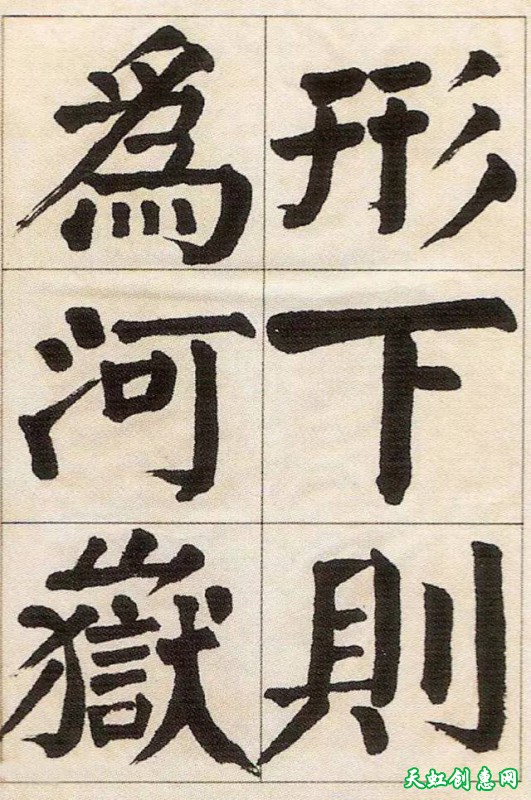 形下則
為河嶽
天虹创惠网